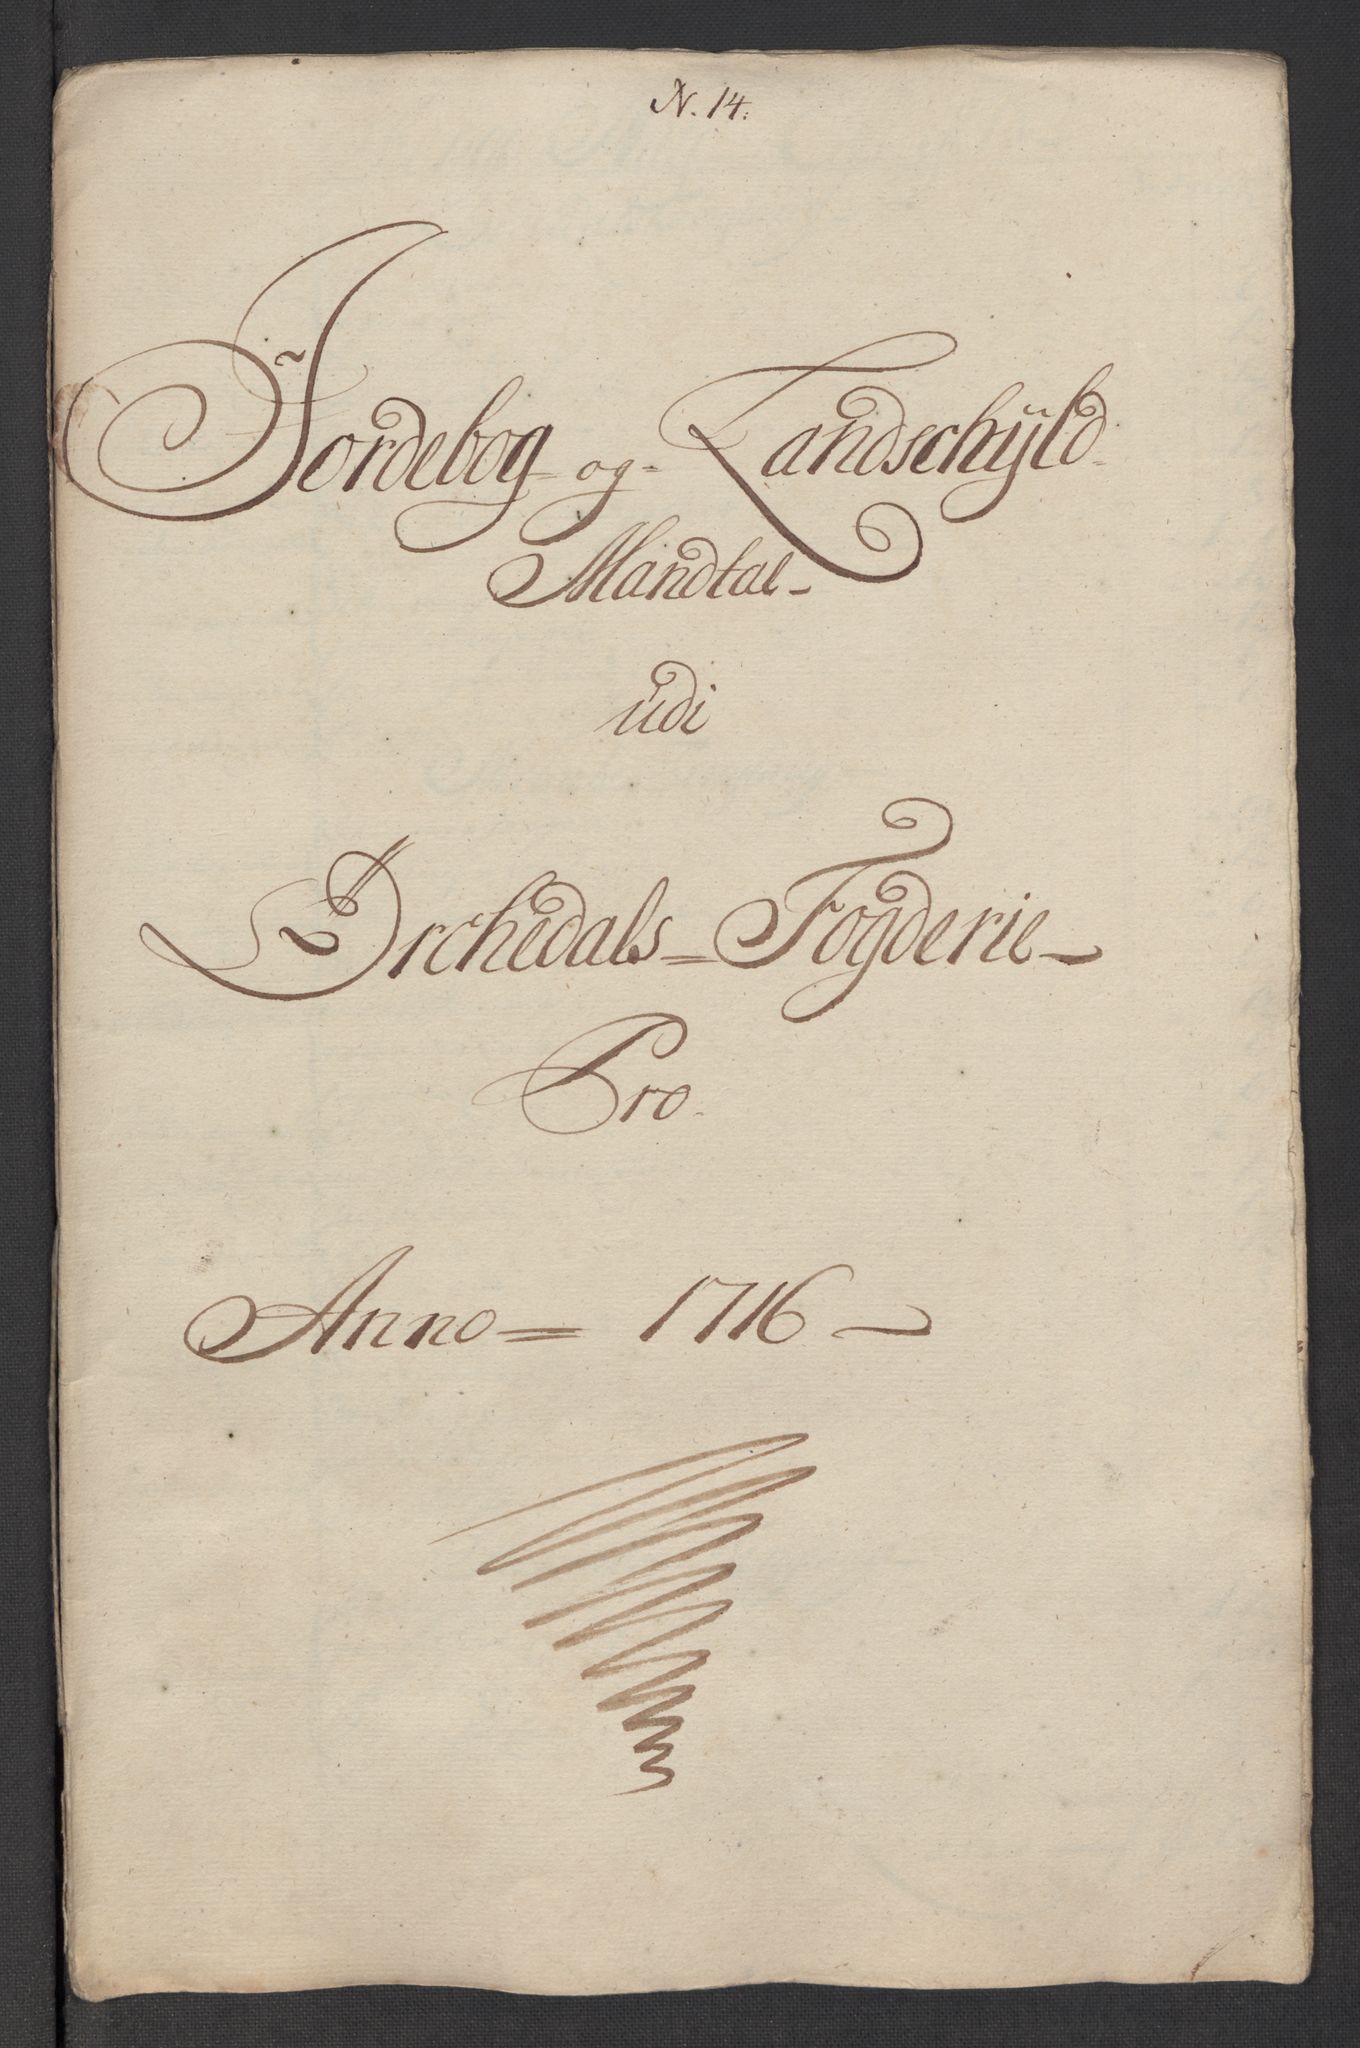 N. 14.
Jordebog og Landschÿld
Mandtal
udi
Ørchedals Fogderie
Pro
Anno 1716